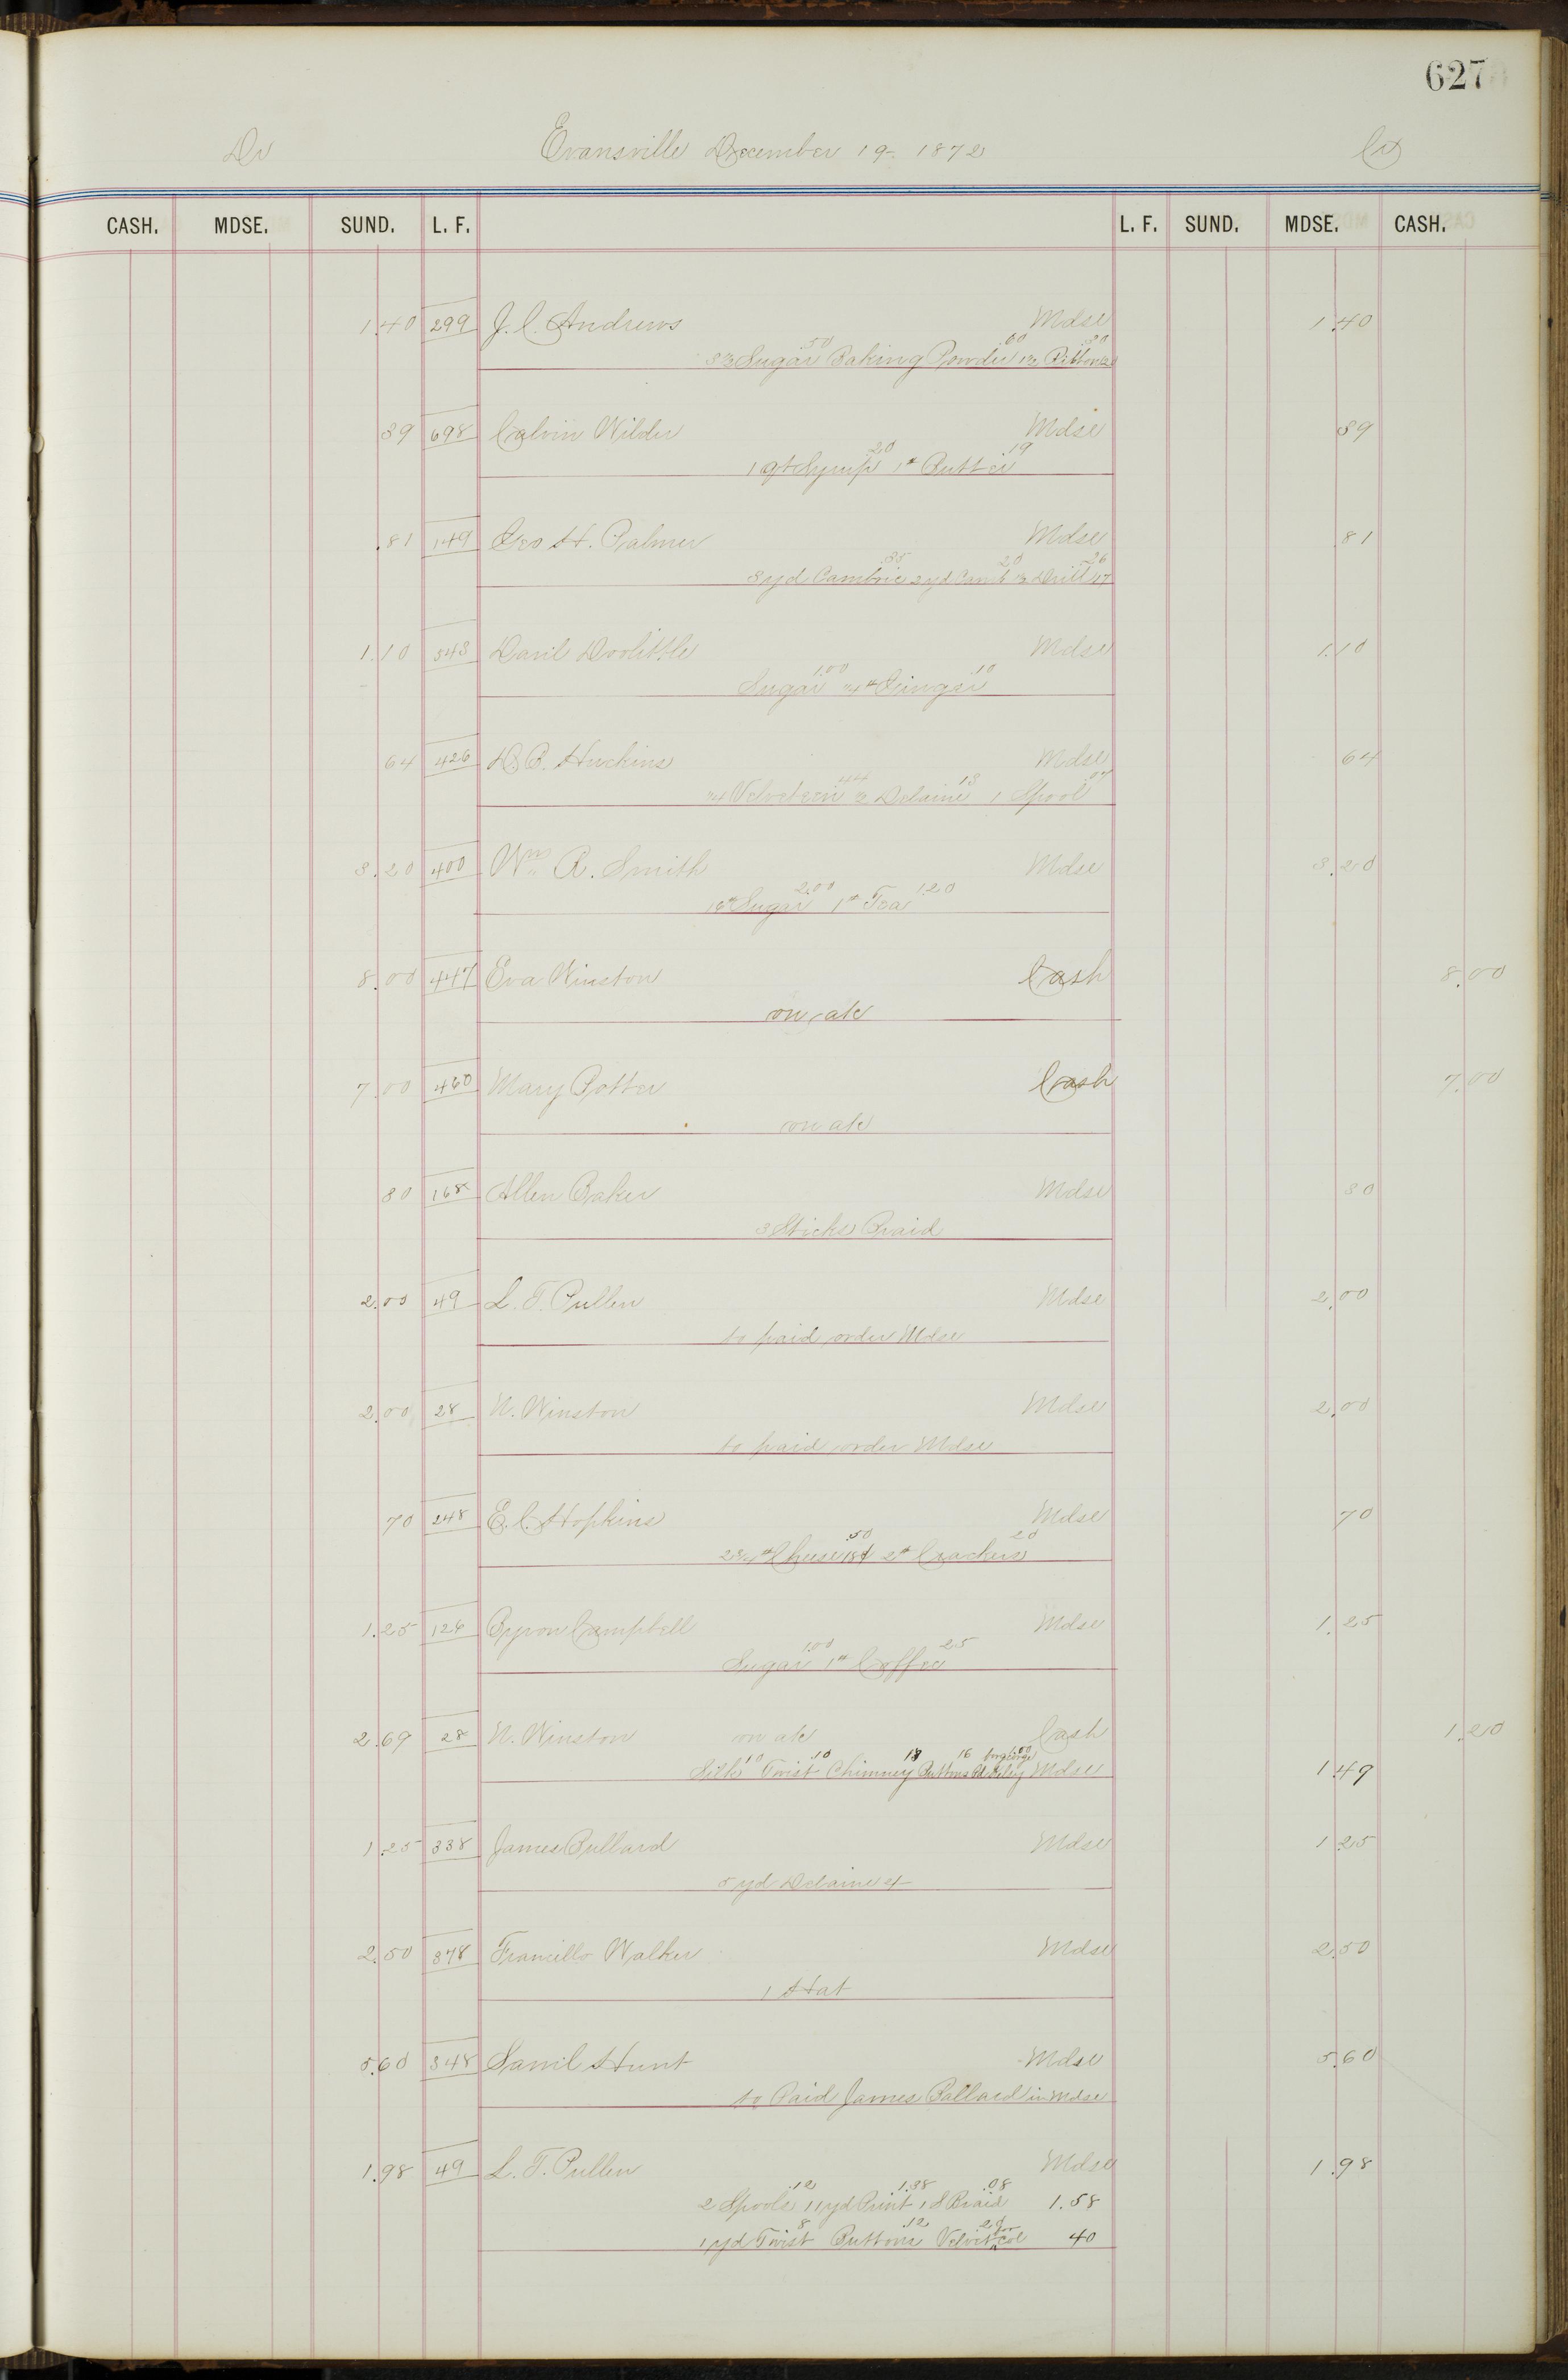 627
Dr Evansville December 19. 1872 Cr
CASH. MDSE. SUND. L. F. L. F. SUND. MDSE. CASH.
1.40 299 J. C. Andrews Mdse 1.40
.50 .60 .30
Sugar Baking Powder Ribbon
39 698 Calvin Wilder Mdse 39
.20 19
1 qt Syrup 1# Butter
.81 149 Geo H. Palmer Mdse .81
.35 20 26
3 yd Cambric 2 yd Camb Drill 17
1.10 343 Danl Doolittle Mdse 1.10
1.00 .10
Sugar 1/4# Ginger
64 426 D. B. Huckins Mdse 64
44 13 07
Velveteen 1/2 Delaine 1 Spool
3.20 400 Wm R. Smith Mdse 3.20
2.00 1.20
16# Sugar 1# Tea
8.00 447 Eva Winston Cash 8.00
on a/c
7.00 460 Mary Potter Cash 7.00
on a/c
30 168 Allen Baker Mdse 30
3 Sticks Braid
2.00 49 L. T. Pullen Mdse 2.00
to paid order Mdse
2.00 28 N. Winston Mdse 2.00
to paid order Mdse
70 248 E. C. Hopkins Mdse 70
.50 20
2 3/4# Cheese 18¢ 2# Crackers
1.25 126 Byron Campbell Mdse 1.25
1.00 25
Sugar 1# Coffee
2.69 28 N. Winston on a/c Cash 1.20
10 .10 18 16 for George
Silk Twist Chimney Buttons Mdse 1.49
1.25 338 James Bullard Mdse 1.25
5 yd Delaine
2.50 378 Francillo Walker Mdse 2.50
1 Hat
5.60 348 Saml Hunt Mdse 5.60
to Paid James Ballard in Mdse
1.98 49 L. T. Pullen Mdse 1.98
.12 1.38 .08
2 Spools 11 yd Print 1 S Braid 1.58
8 .12 20
1 yd Twist Buttons Velvet for Col 40